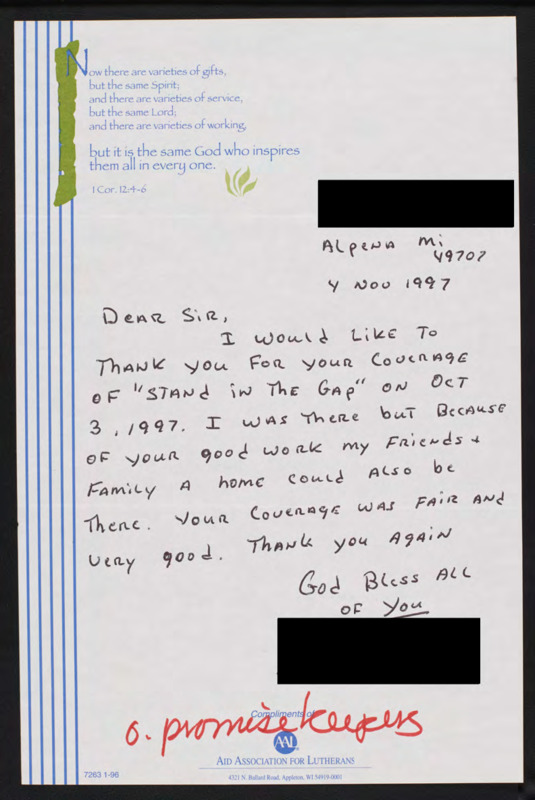 Now there are varieties of gifts,
but the same Spirit;
and there are varieties of service,
but the same Lord;
and there are varieties of working,
but it is the same God who inspires
them all in every one.
1 Cor. 12:4-6
Alpena Mi
49707
4 Nov 1997
Dear Sir,
I would like to
thank you for your coverage
of "Stand in the Gap" on Oct
3, 1997. I was there but because
of your good work my friends +
family a home could also be
there. Your coverage was fair and
very good. Thank you again
God Bless All
of You
Compliments of
o. promise keepers
AAL
AID ASSOCIATION FOR LUTHERANS
7263 1-96
4321 N. Ballard Road, Appleton, WI 54919-0001